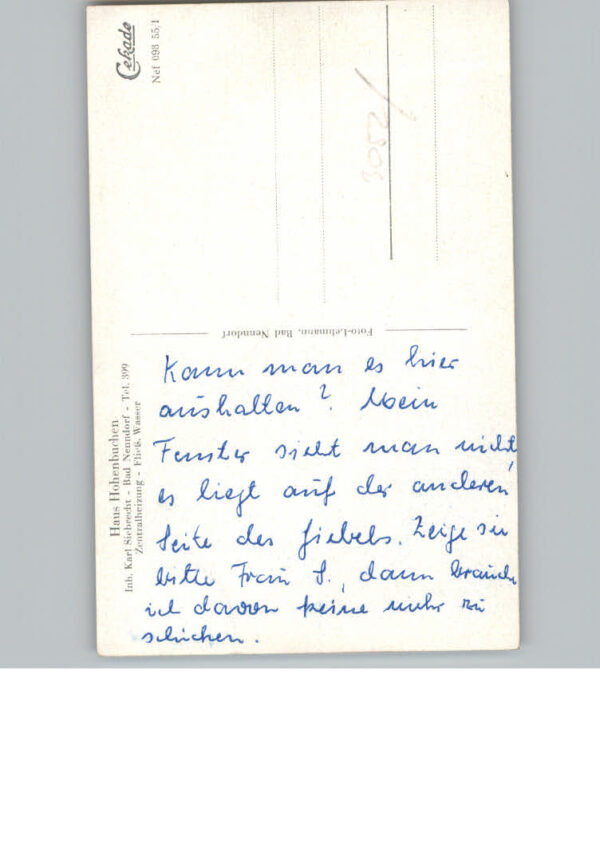 Cekade
Nef 098 55/1
Foto-Lehmann, Bad Nenndorf
Haus Hohenbuchen
Inh. Karl Siebrecht - Bad Nenndorf - Tel. 399
Zentralheizung - Fließ. Wasser
Kann man es hier
aushalten? Mein
Fenster sieht man nicht,
es liegt auf der anderen
Seite des Giebels. Zeige sie
bitte Frau S., dann brauche
ich davon keine mehr zu
schicken.